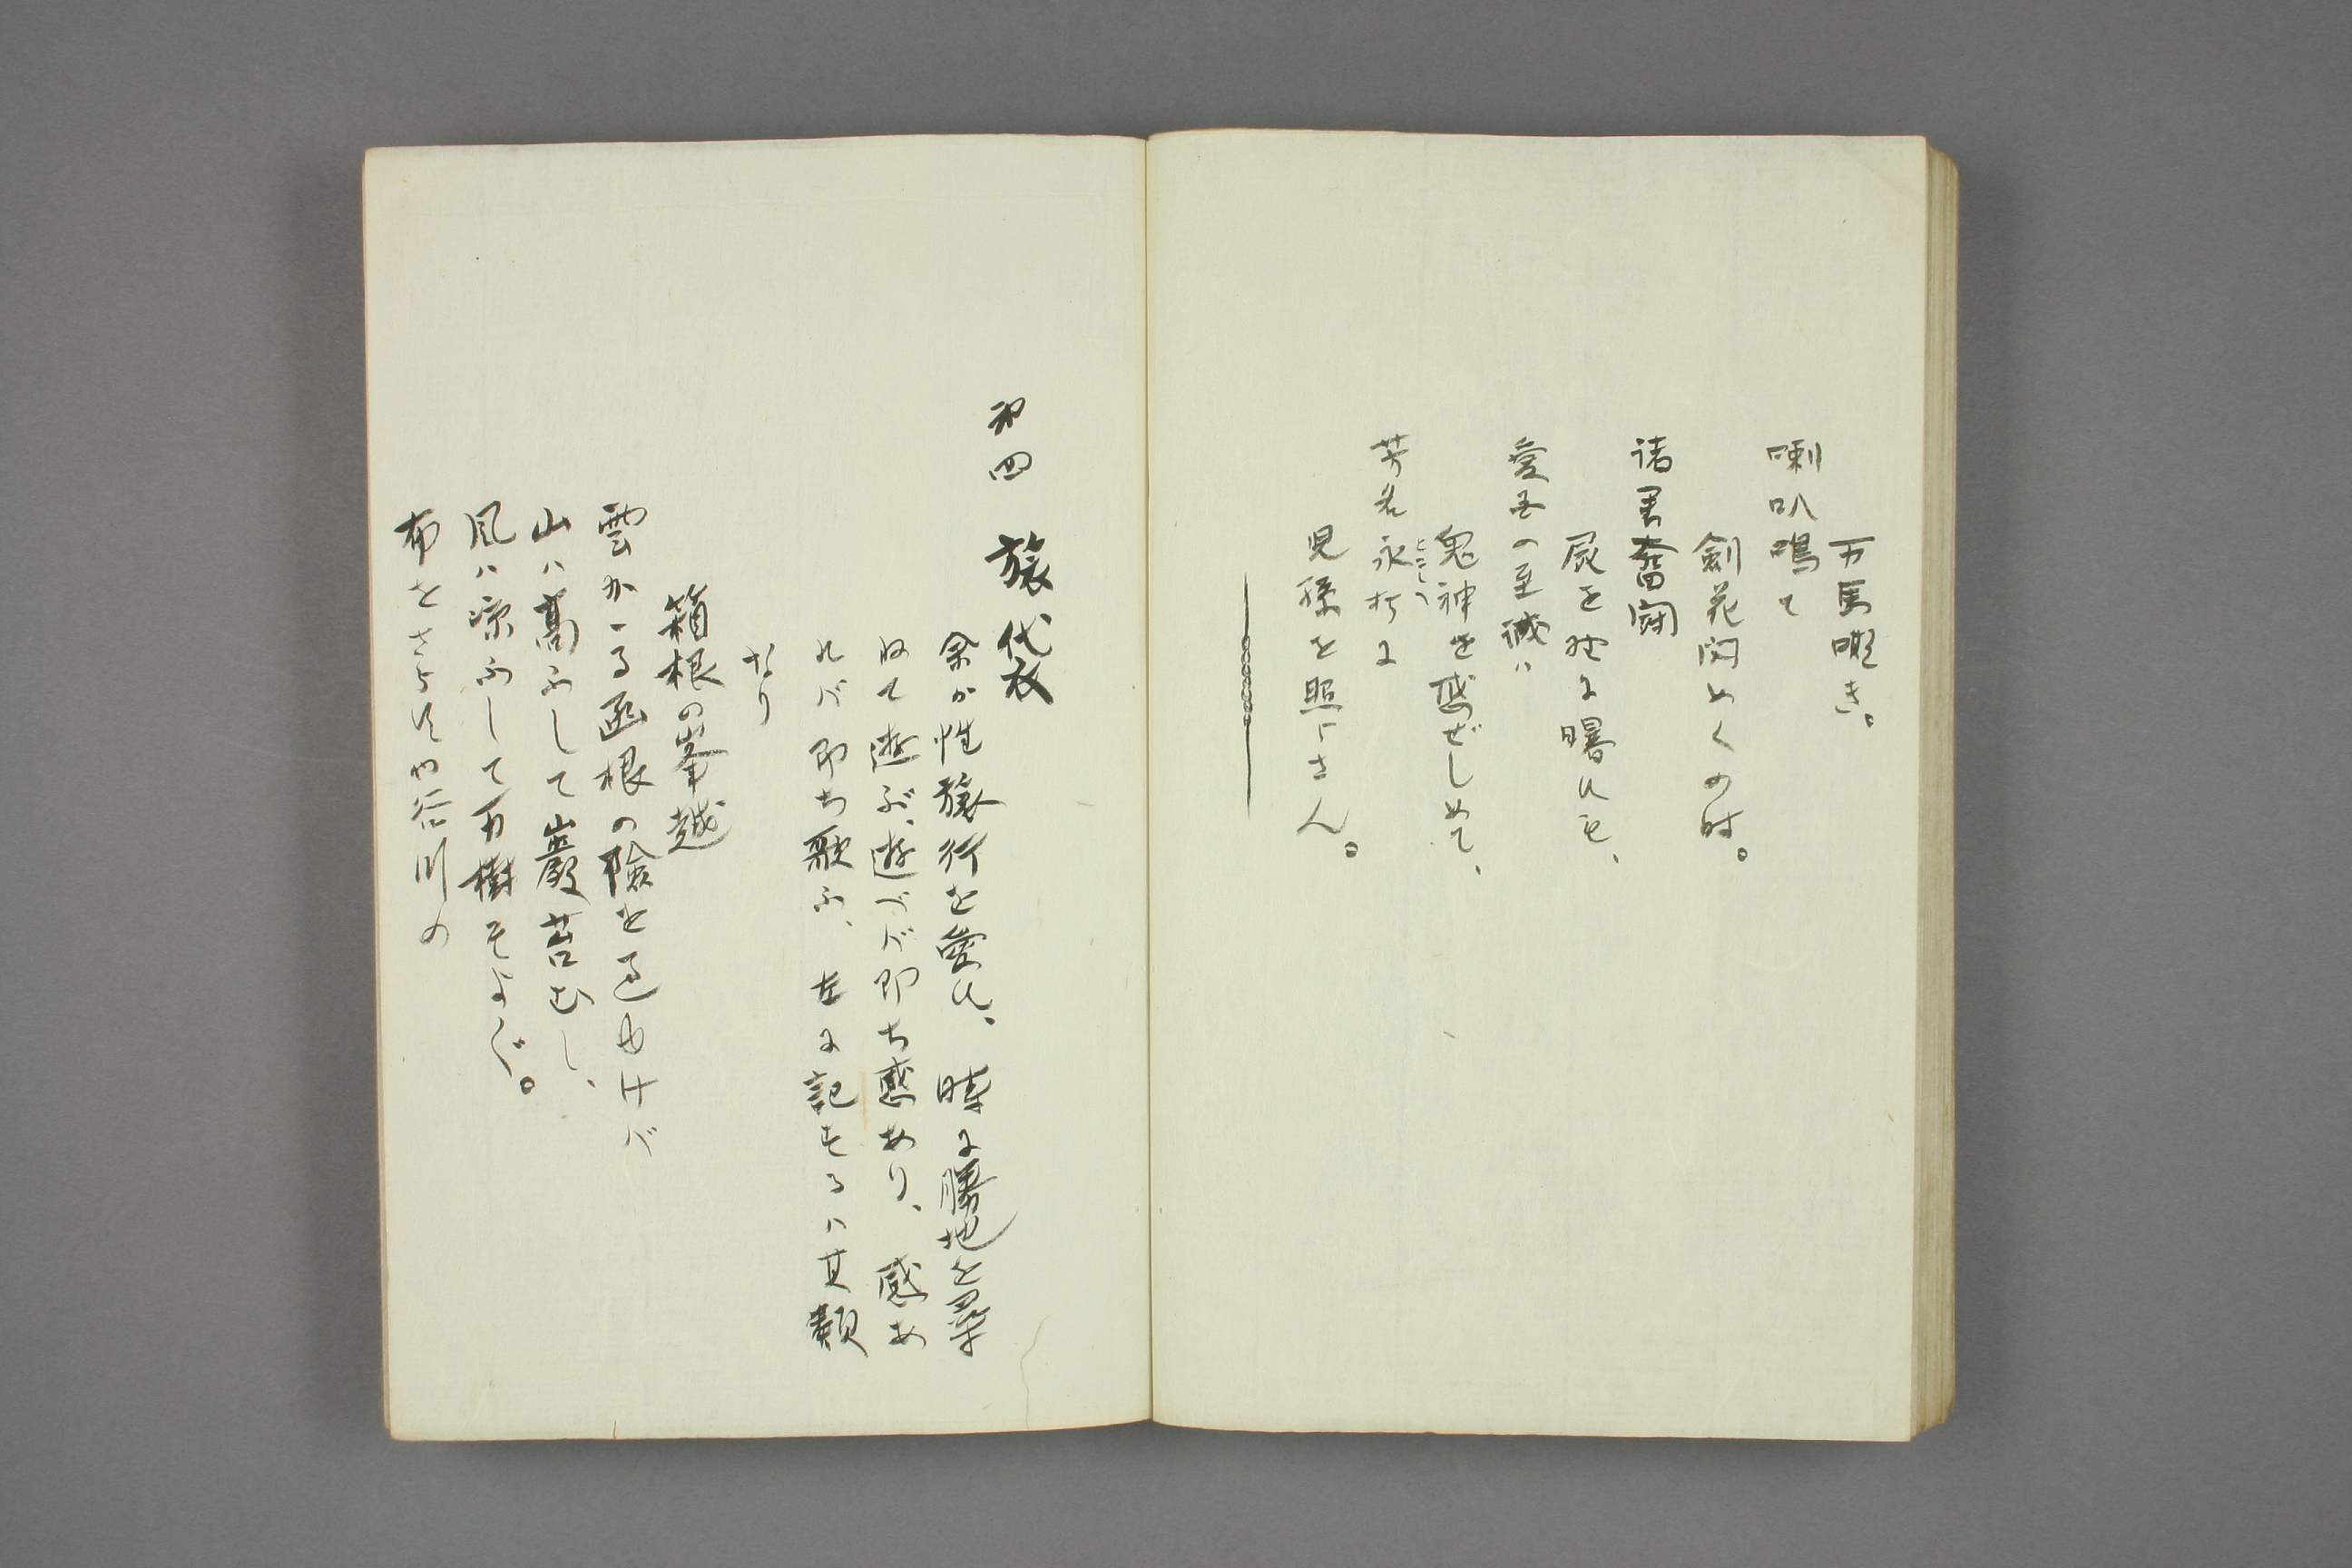 万馬嘶き。
喇叭鳴て
劍花閃めくの時。
諸君奮闘
屍を野に曝すも、
愛国の至誠ハ
鬼神を感ぜしめて、
芳名永
とこしへ
に
児孫を照さん。
第四　旅衣
余が性旅行を愛し、時に勝地を尋
ねて遊ぶ、遊べバ即ち感あり、感あ
れバ即ち歌ふ、左に記するハ其類
なり
箱根の峯越
雲かゝる函根の險を過ゆけバ
山ハ高ふして巖苔むし、
風ハ凉ふして万樹そよぐ。
布をさらすや谷川の